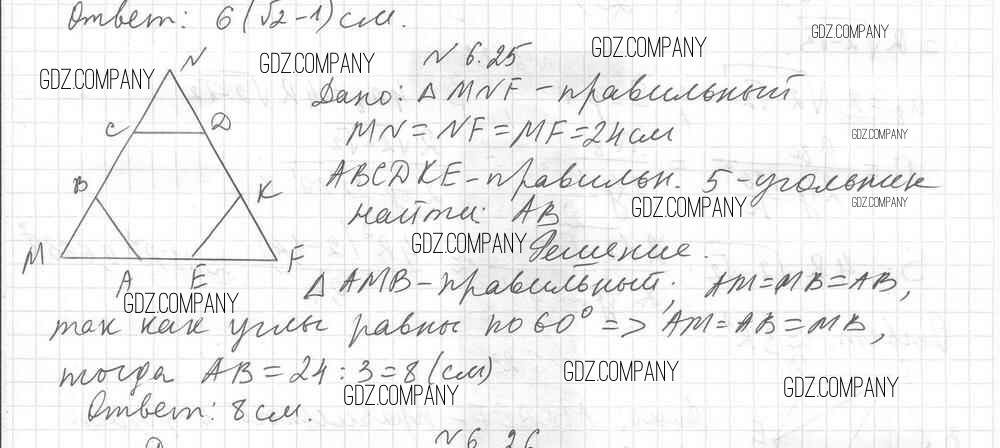 Ответ: 6(√2-1)см.
GDZ.COMPANY
GDZ.COMPANY
GDZ.COMPANY
GDZ.COMPANY
N 6.25
Дано: △ MNF - правильный
MN = NF = MF = 24 см
GDZ.COMPANY
ABCDKE - правильн. 5-угольник
GDZ.COMPANY
найти: AB
GDZ.COMPANY
GDZ.COMPANY
Решение.
N
C
D
B
K
M
A
E
F
GDZ.COMPANY
△ AMB - правильный; AM = MB = AB,
так как углы равны по 60° => AM = AB = MB,
тогда AB = 24 : 3 = 8 (см)
GDZ.COMPANY
GDZ.COMPANY
GDZ.COMPANY
Ответ: 8 см.
N 6.26